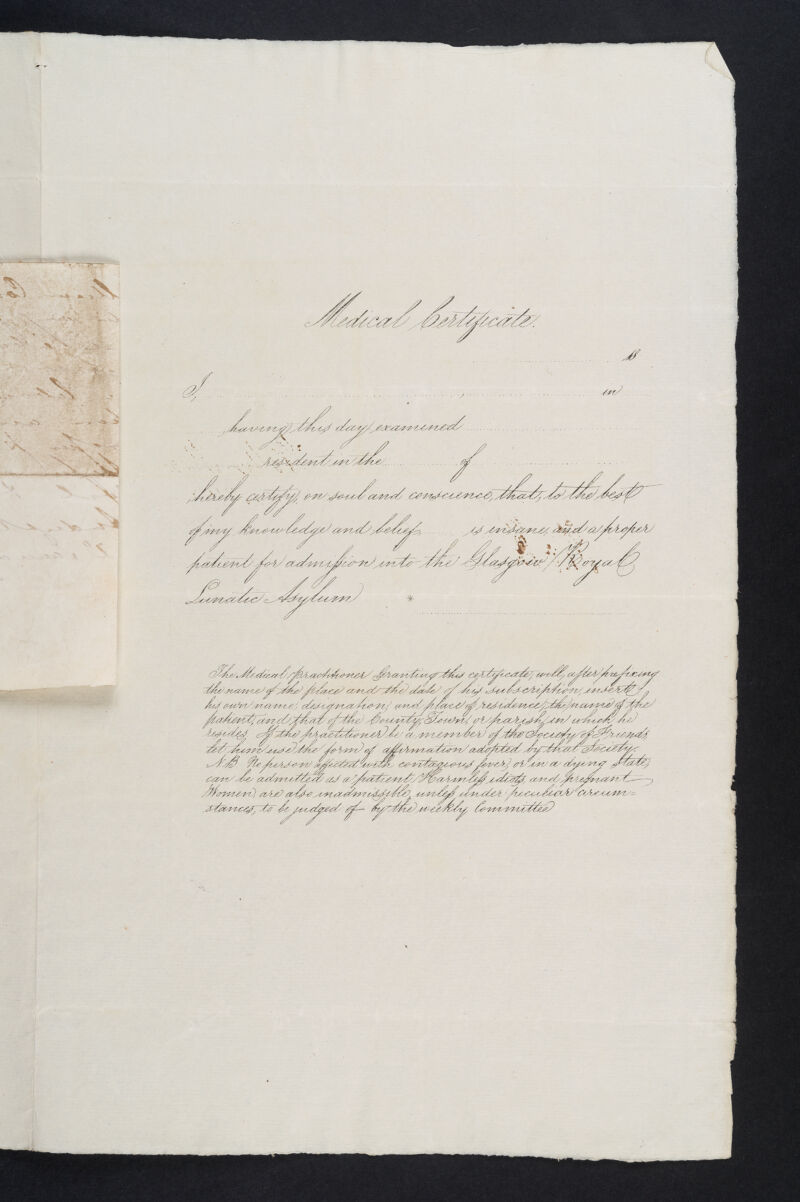 Medical Certificate.
18
I, in
having this day examined
resident in the of
hereby certify, on soul and conscience, that, to the best
of my knowledge and belief is insane, and a proper
patient for admission into the Glasgow Royal
Lunatic Asylum
The Medical practitioner Granting this certificate, will, after prefixing
the name of the place and the date of his subscription, insert
his own name, designation, and place of residence, the name of the
patient, and that of the County, Town, or parish, in which he
resides. If the practitioner be a member of the Society of Friends
let him use the form of affirmation adopted by that Society.
N.B. No person affected with contagious fever, or in a dying state,
can be admitted as a patient. Harmless idiots and pregnant
Women, are also inadmissible, unless under peculiar circum=
stances, to be judged of by the weekly Committee